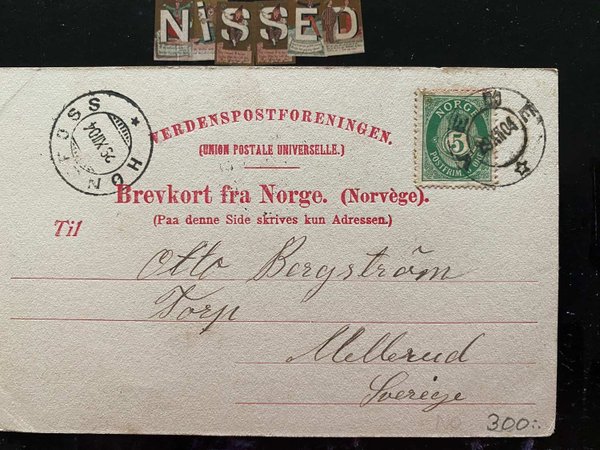 NiSSED
VERDENSPOSTFORENINGEN.
(UNION POSTALE UNIVERSELLE.)
Brevkort fra Norge. (Norvège).
(Paa denne Side skrives kun Adressen.)
Til
HØNEFOSS
25 XII 04
NORGE
5
POSTFRIM
XII 04
Otto Bergström
Torp
Mellerud
Sverige
300:.